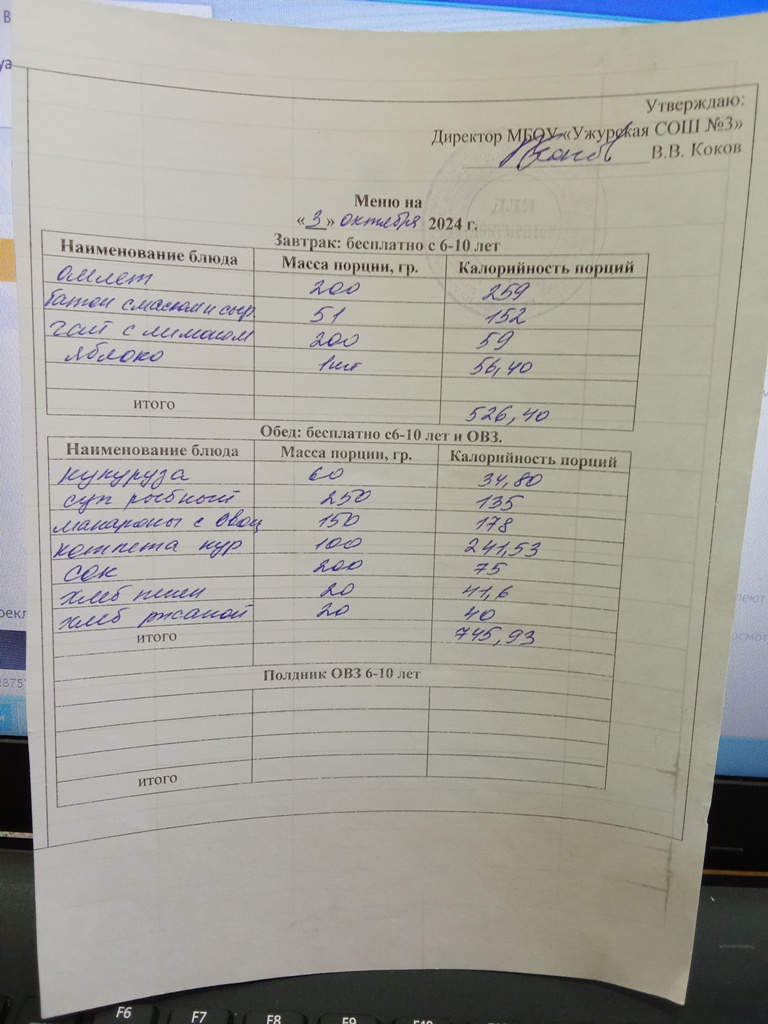 Утверждаю:
Директор МБОУ «Ужурская СОШ №3»
В.В. Коков
Меню на
«3» октября 2024 г.
Завтрак: бесплатно с 6-10 лет
Наименование блюда Масса порции, гр. Калорийность порций
омлет 200 259
батон с маслом и сыр. 51 152
чай с лимоном 200 59
яблоко 1шт 56,40
итого 526,40
Обед: бесплатно с6-10 лет и ОВЗ.
Наименование блюда Масса порции, гр. Калорийность порций
кукуруза 60 34,80
суп рыбный 250 135
макароны с овощ 150 178
котлета кур 100 241,53
сок 200 75
хлеб пшен 20 41,6
хлеб ржаной 20 40
итого 745,93
Полдник ОВЗ 6-10 лет
итого
F6 F7 F8 F9 F10